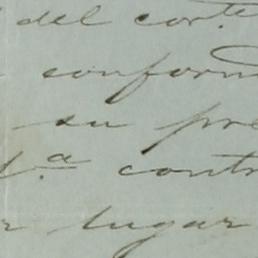 del corte
conform
su pre
d.ª contr
r lugar